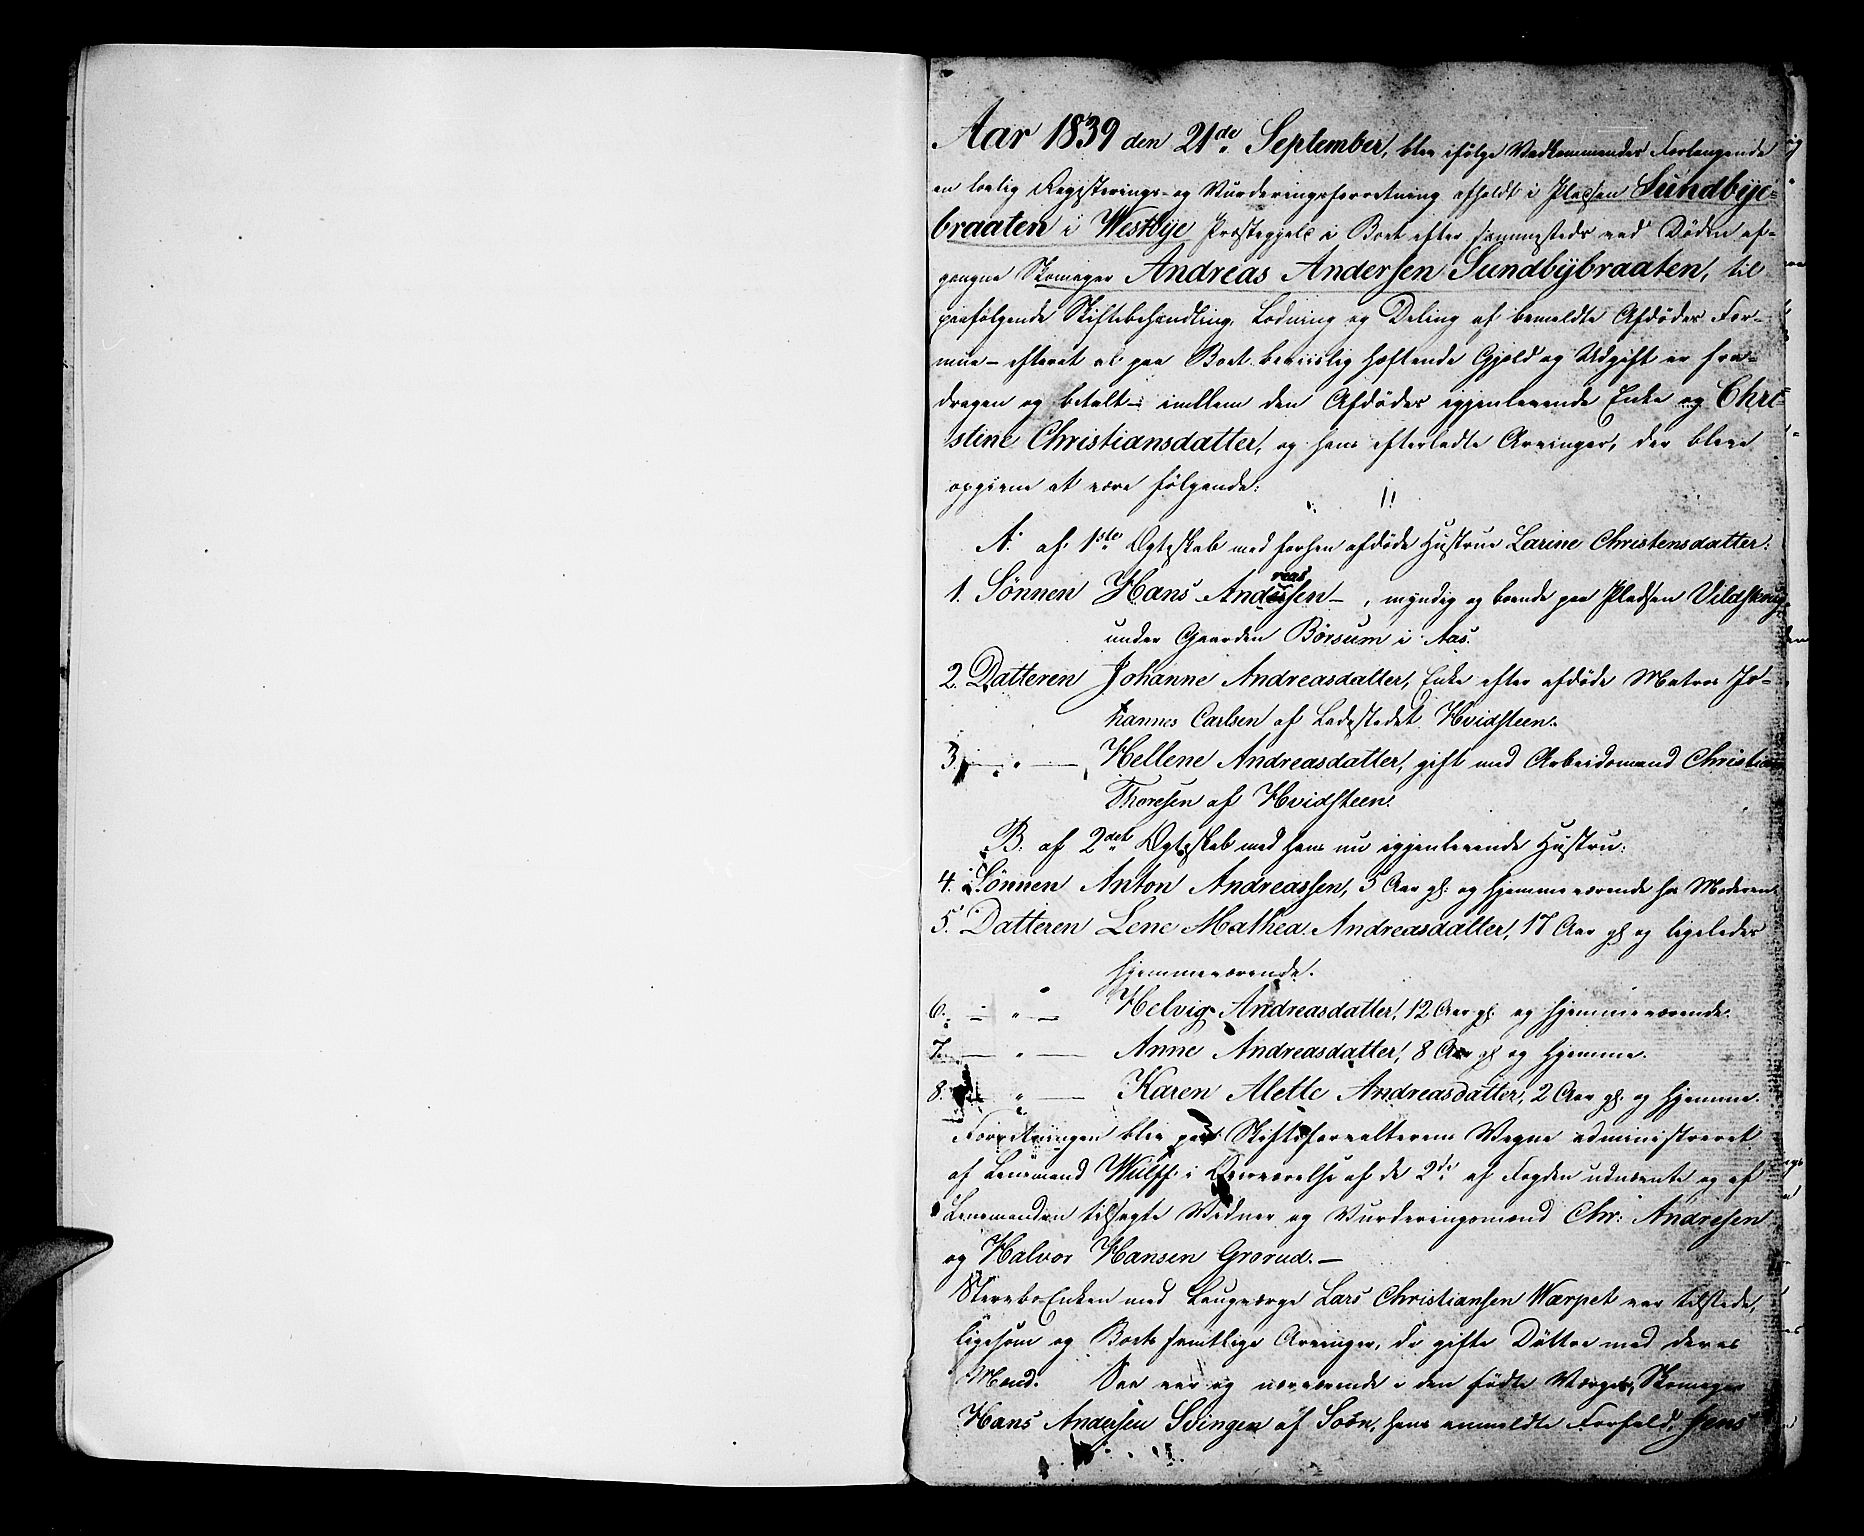 Aar 1839 den 21de September, blev ifølge Vedkommendes Forlangende
en lovlig Registerings- og Vurderingsforretning afholdt i Pladsen Sundbÿe-
braaten i Westbÿe Præstegjeld i Boet efter sammesteds ved Døden af-
gangne Skomager Andreas Andersen Sundbÿbraaten, til
paafølgende Skiftebehandling, Lodning og Deling af bemeldte Afdødes For-
mue – efterat al paa Boet beviislig hæftende Gjeld og Udgift er fra-
dragen og betalt – imellem den Afdødes igjenlevende Enke og Chri-
stine Christiansdatter, og hans efterladte Arvinger, der bleve
opgivne at være følgende:
A. af 1ste Ægteskab med forhen afdøde Hustrue Larine Christensdatter:
1. Sønnen Hans Andreassen – , myndig og boende paa Pladsen
under Gaarden Børsum i Aas.
2. Datteren Johanne Andreasdatter, Enke efter afdøde Matros Jo-
hannes Carlsen af Ladestedet Hvidsteen.
3. — " — Hellene Andreasdatter, gift med Arbeidsmand Christian
Thoresen af Hvidsteen.
B. af 2det Ægteskab med hans nu igjenlevende Hustru:
4. Sønnen Anton Andreassen, 5 Aar gl. og hjemmeværende hos Moderen.
5. Datteren Lene Mathea Andreasdatter, 17 Aar gl og ligeledes
hjemmeværende.
6. — " — Helvig Andreasdatter, 12 Aar gl. og hjemmeværende.
7. — " — Anne Andreasdatter, 8 Aar gl og hjemme.
8. — " — Karen Alette Andreasdatter, 2 Aar gl. og hjemme.
Forretningen blev paa Skifteforvalterens Vegne administreret
af Lensmand Wulff i Overværelse af de 2de af Fogden udnævnte og af
Lensmanden tilsagte Vidner og Vurderingsmænd Chr: Andresen
og Halvor Hansen Grorud. –
Stervbo-Enken med Laugværge Lars Christiansen Wærpet var tilstede,
ligesom og Boets samtlige Arvinger, de gifte Døttre med deres
Mænd. Saa var og nærværende i den fødte Værges, Skomager
Hans Andersen Svingen af Soon, hans anmeldte Forfald, hans